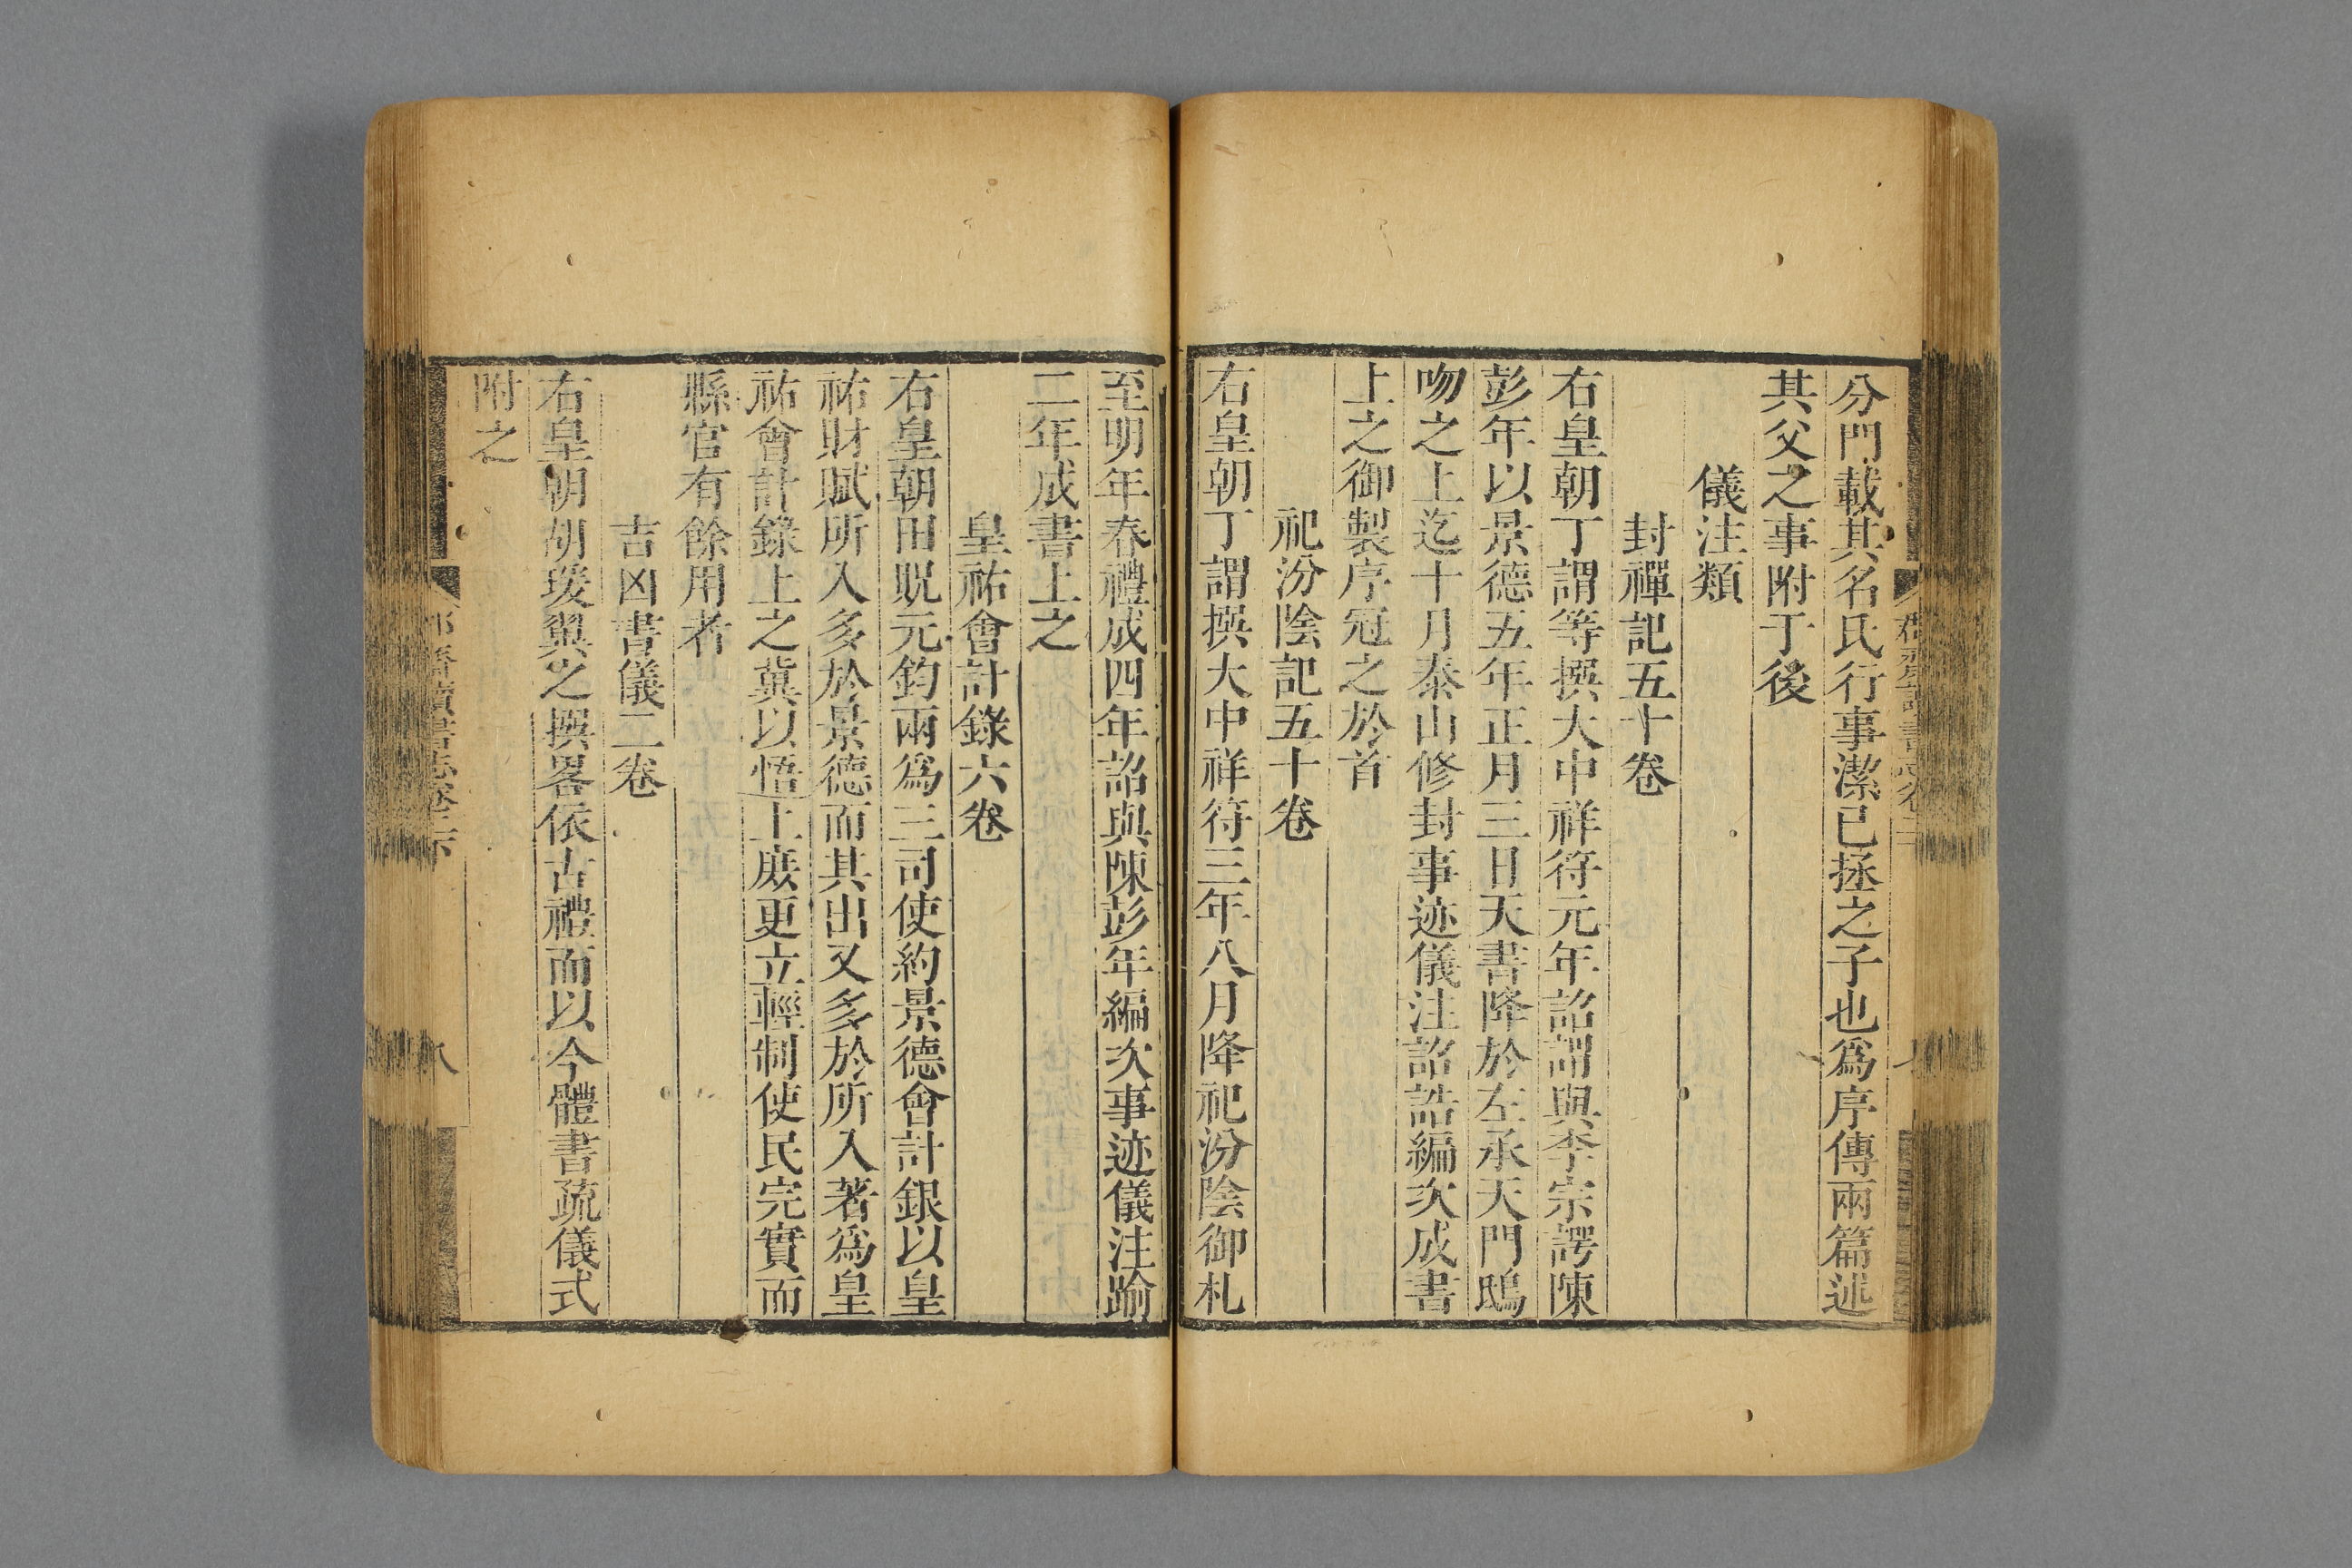 分門載其名氏行事潔已拯之子也爲序傳兩篇述
其父之事附于後
儀注類
封禪記五十卷
右皇朝丁謂等撰大中祥符元年詔謂與李宗諤陳
彭年以景德五年正月三日天書降於左承天門鴟
吻之上迄十月泰山修封事迹儀注詔誥編次成書
上之御製序冠之於首
祀汾陰記五十卷
右皇朝丁謂撰大中祥符三年八月降祀汾陰御札
至明年春禮成四年詔與陳彭年編次事迹儀注踰
二年成書上之
皇祐會計錄六卷
右皇朝田况元鈞兩爲三司使約景德會計銀以皇
祐財賦所入多於景德而其出又多於所入著爲皇
祐會計錄上之冀以悟上庶更立輕制使民完實而
縣官有餘用者
吉凶書儀二卷
右皇朝胡瑗翼之撰畧依古禮而以今體書疏儀式
附之
八